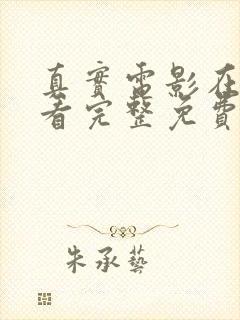 真實電影在
看完整免費
朱承藝